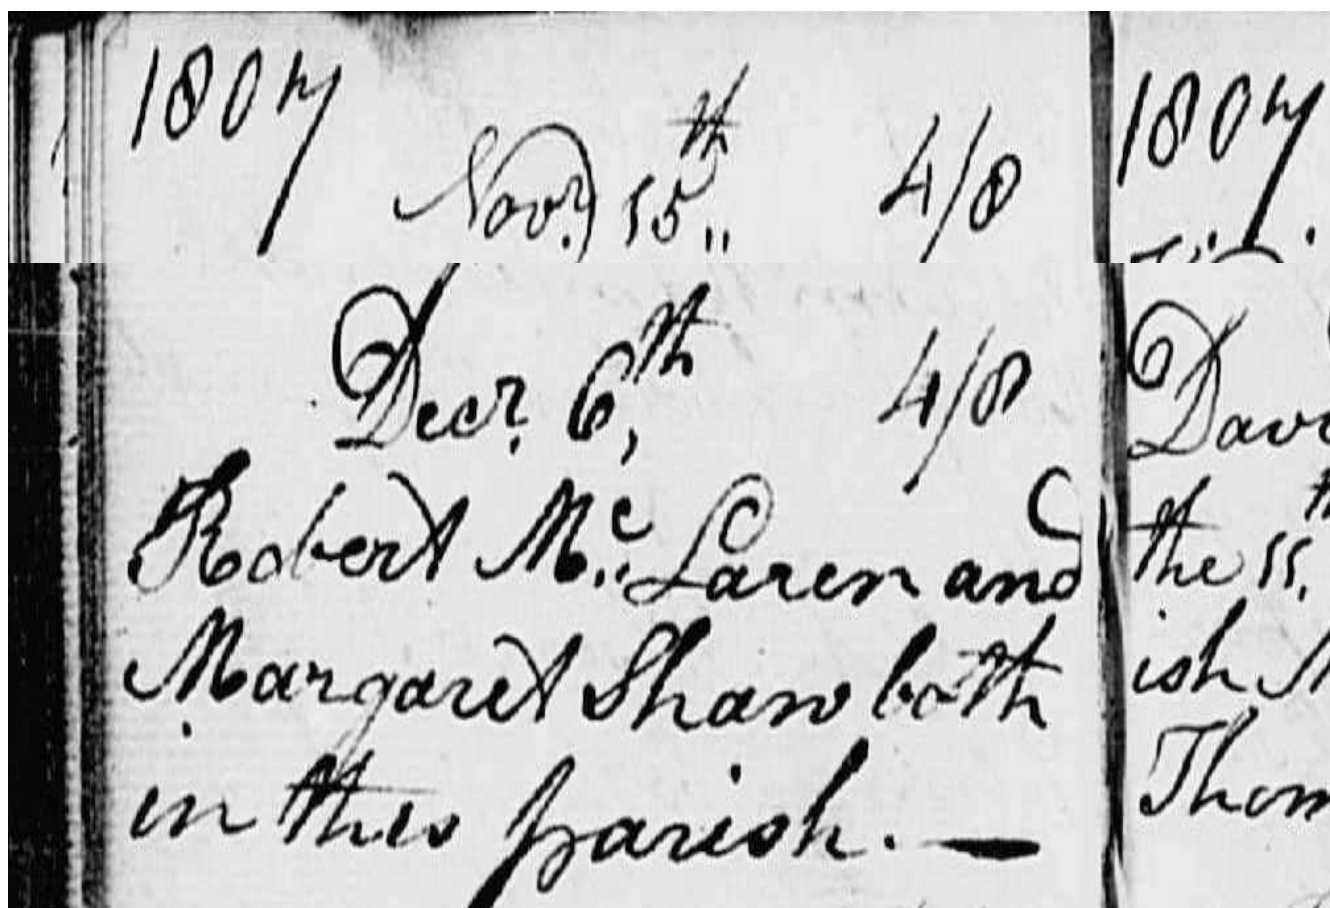 1807
Novr. 15th 4/8
Decr. 6th 4/8
Robert Mc. Laren and
Margaret Shaw both
in this parish. —
1807
the 11.
ish